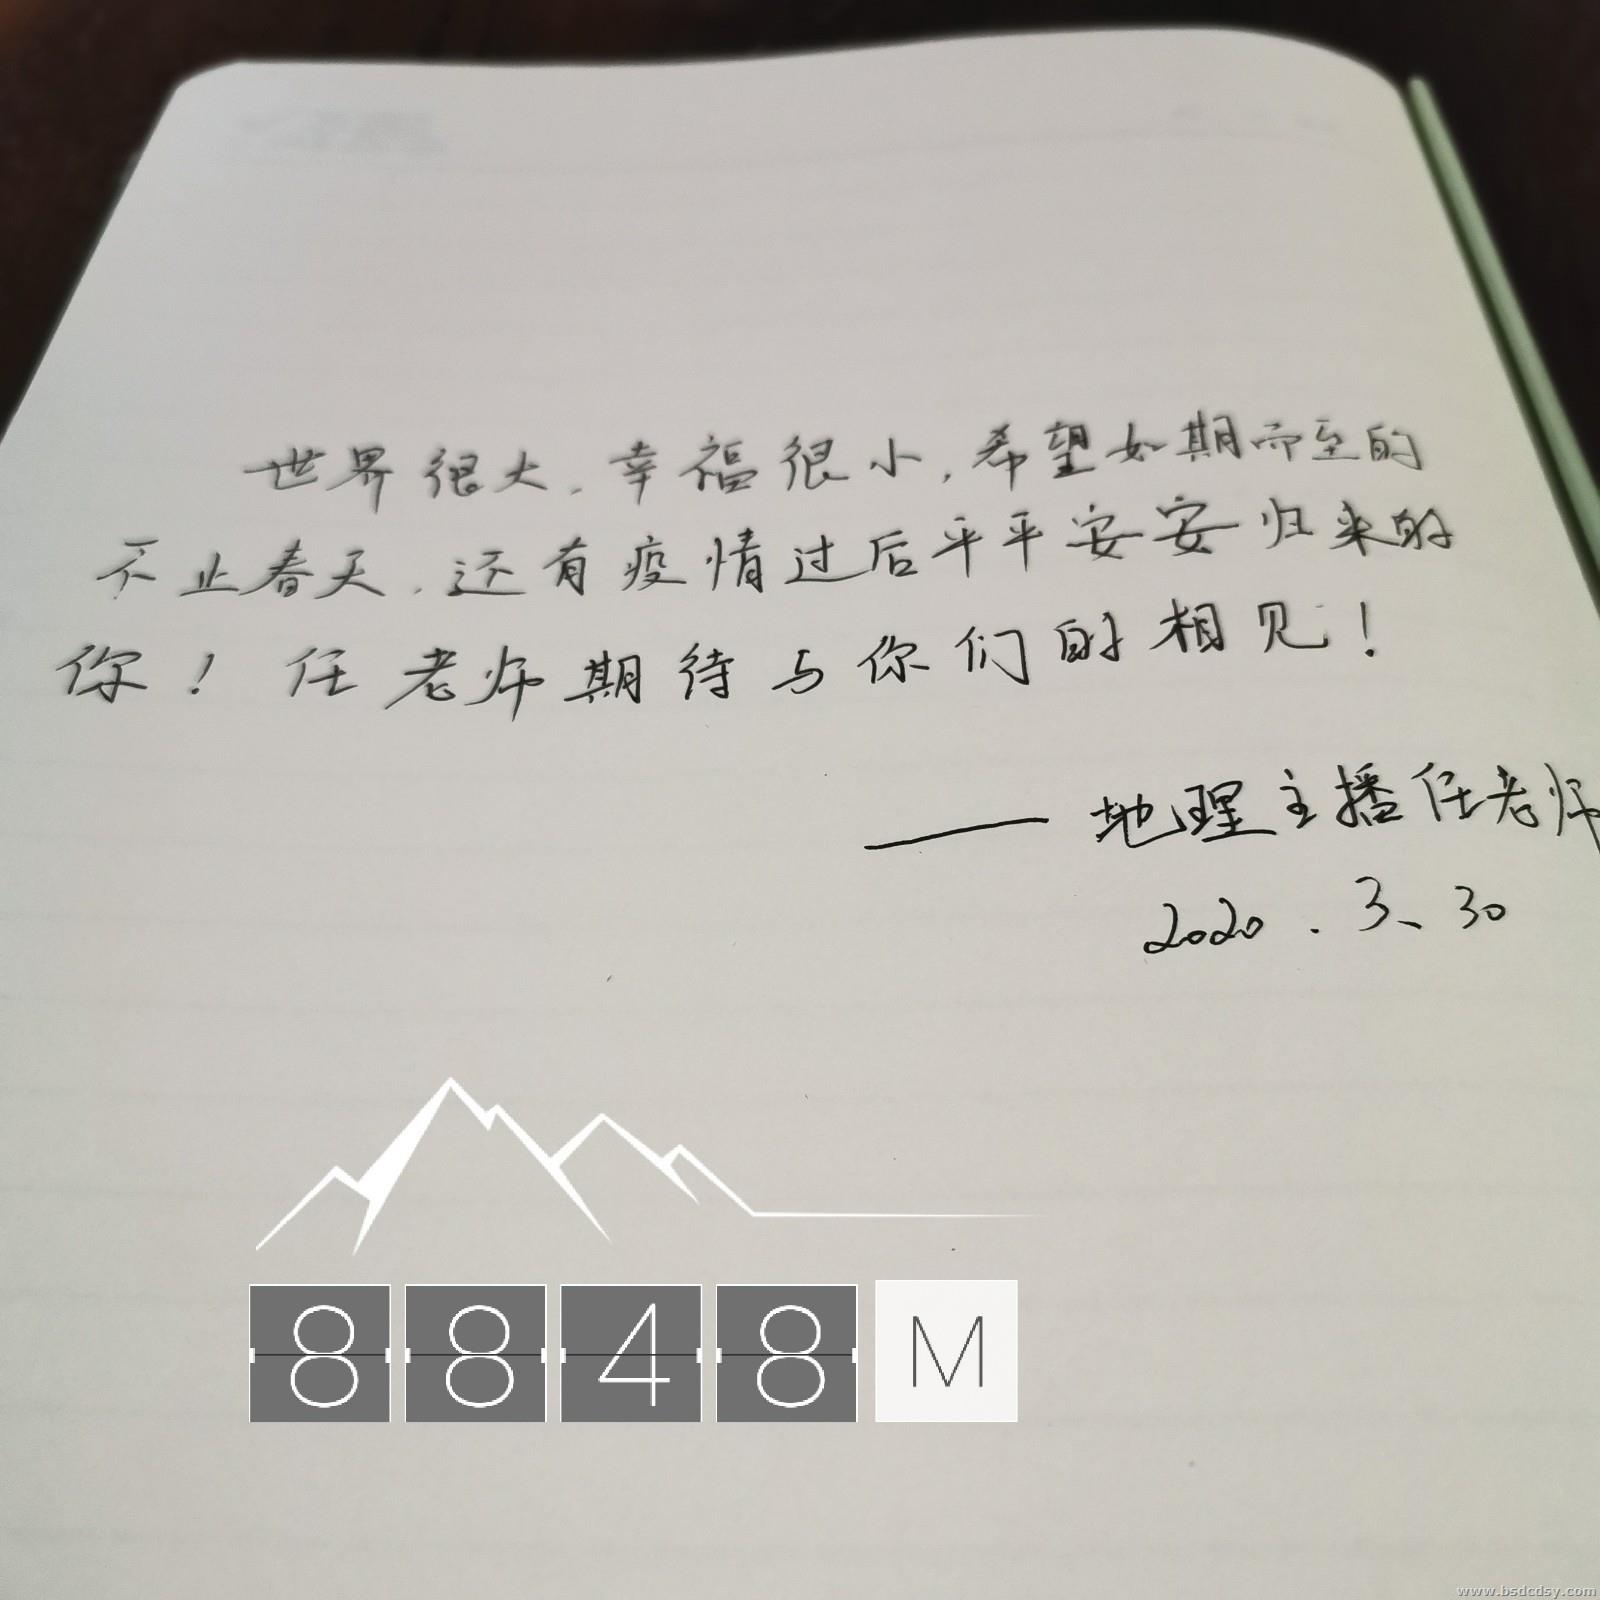 世界很大，幸福很小，希望如期而至的
不止春天，还有疫情过后平平安安归来的
你！任老师期待与你们的相见！
——地理主播任老师
2020.3、30
8848M
www.bsdcdsy.com